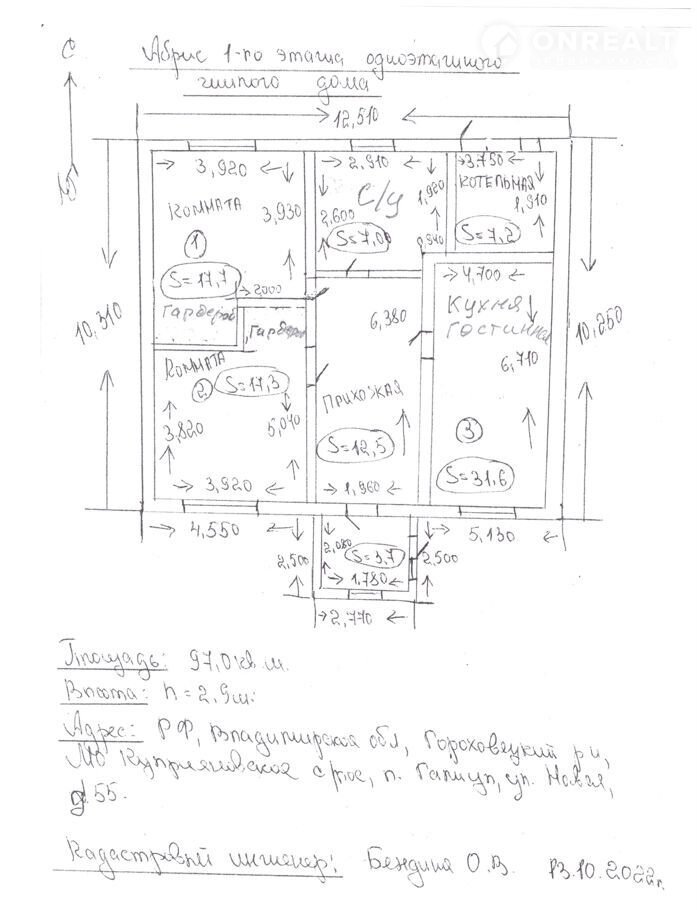 ONREALT
НЕДВИЖИМОСТЬ
С
Абрис 1-го этажа одноэтажного
жилого дома
12,510
3,920
2,910
3,750
КОТЕЛЬНАЯ
КОМНАТА
3,930
С/у
1,920
1,910
2,600
1
S=7,00
0,940
S=7,2
S=17,7
2000
4,700
Гардероб
Гардероб
6,380
Кухня
Гостинная
10,310
10,250
КОМНАТА
6,710
2
S=17,3
ПРИХОЖАЯ
3,820
5,040
3
S=12,5
S=31,6
3,920
1,960
4,550
5,130
2,500
2,080
S=3,7
2,500
1,780
2,770
Площадь: 97,0 кв.м.
Высота: h=2,9м.
Адрес: РФ, Владимирская обл, Гороховецкий р-н,
МО Куприяновское с/пос, п. Галицы, ул. Новая,
д.55.
Кадастровый инженер: Бендина О.В. 13.10.2022г.